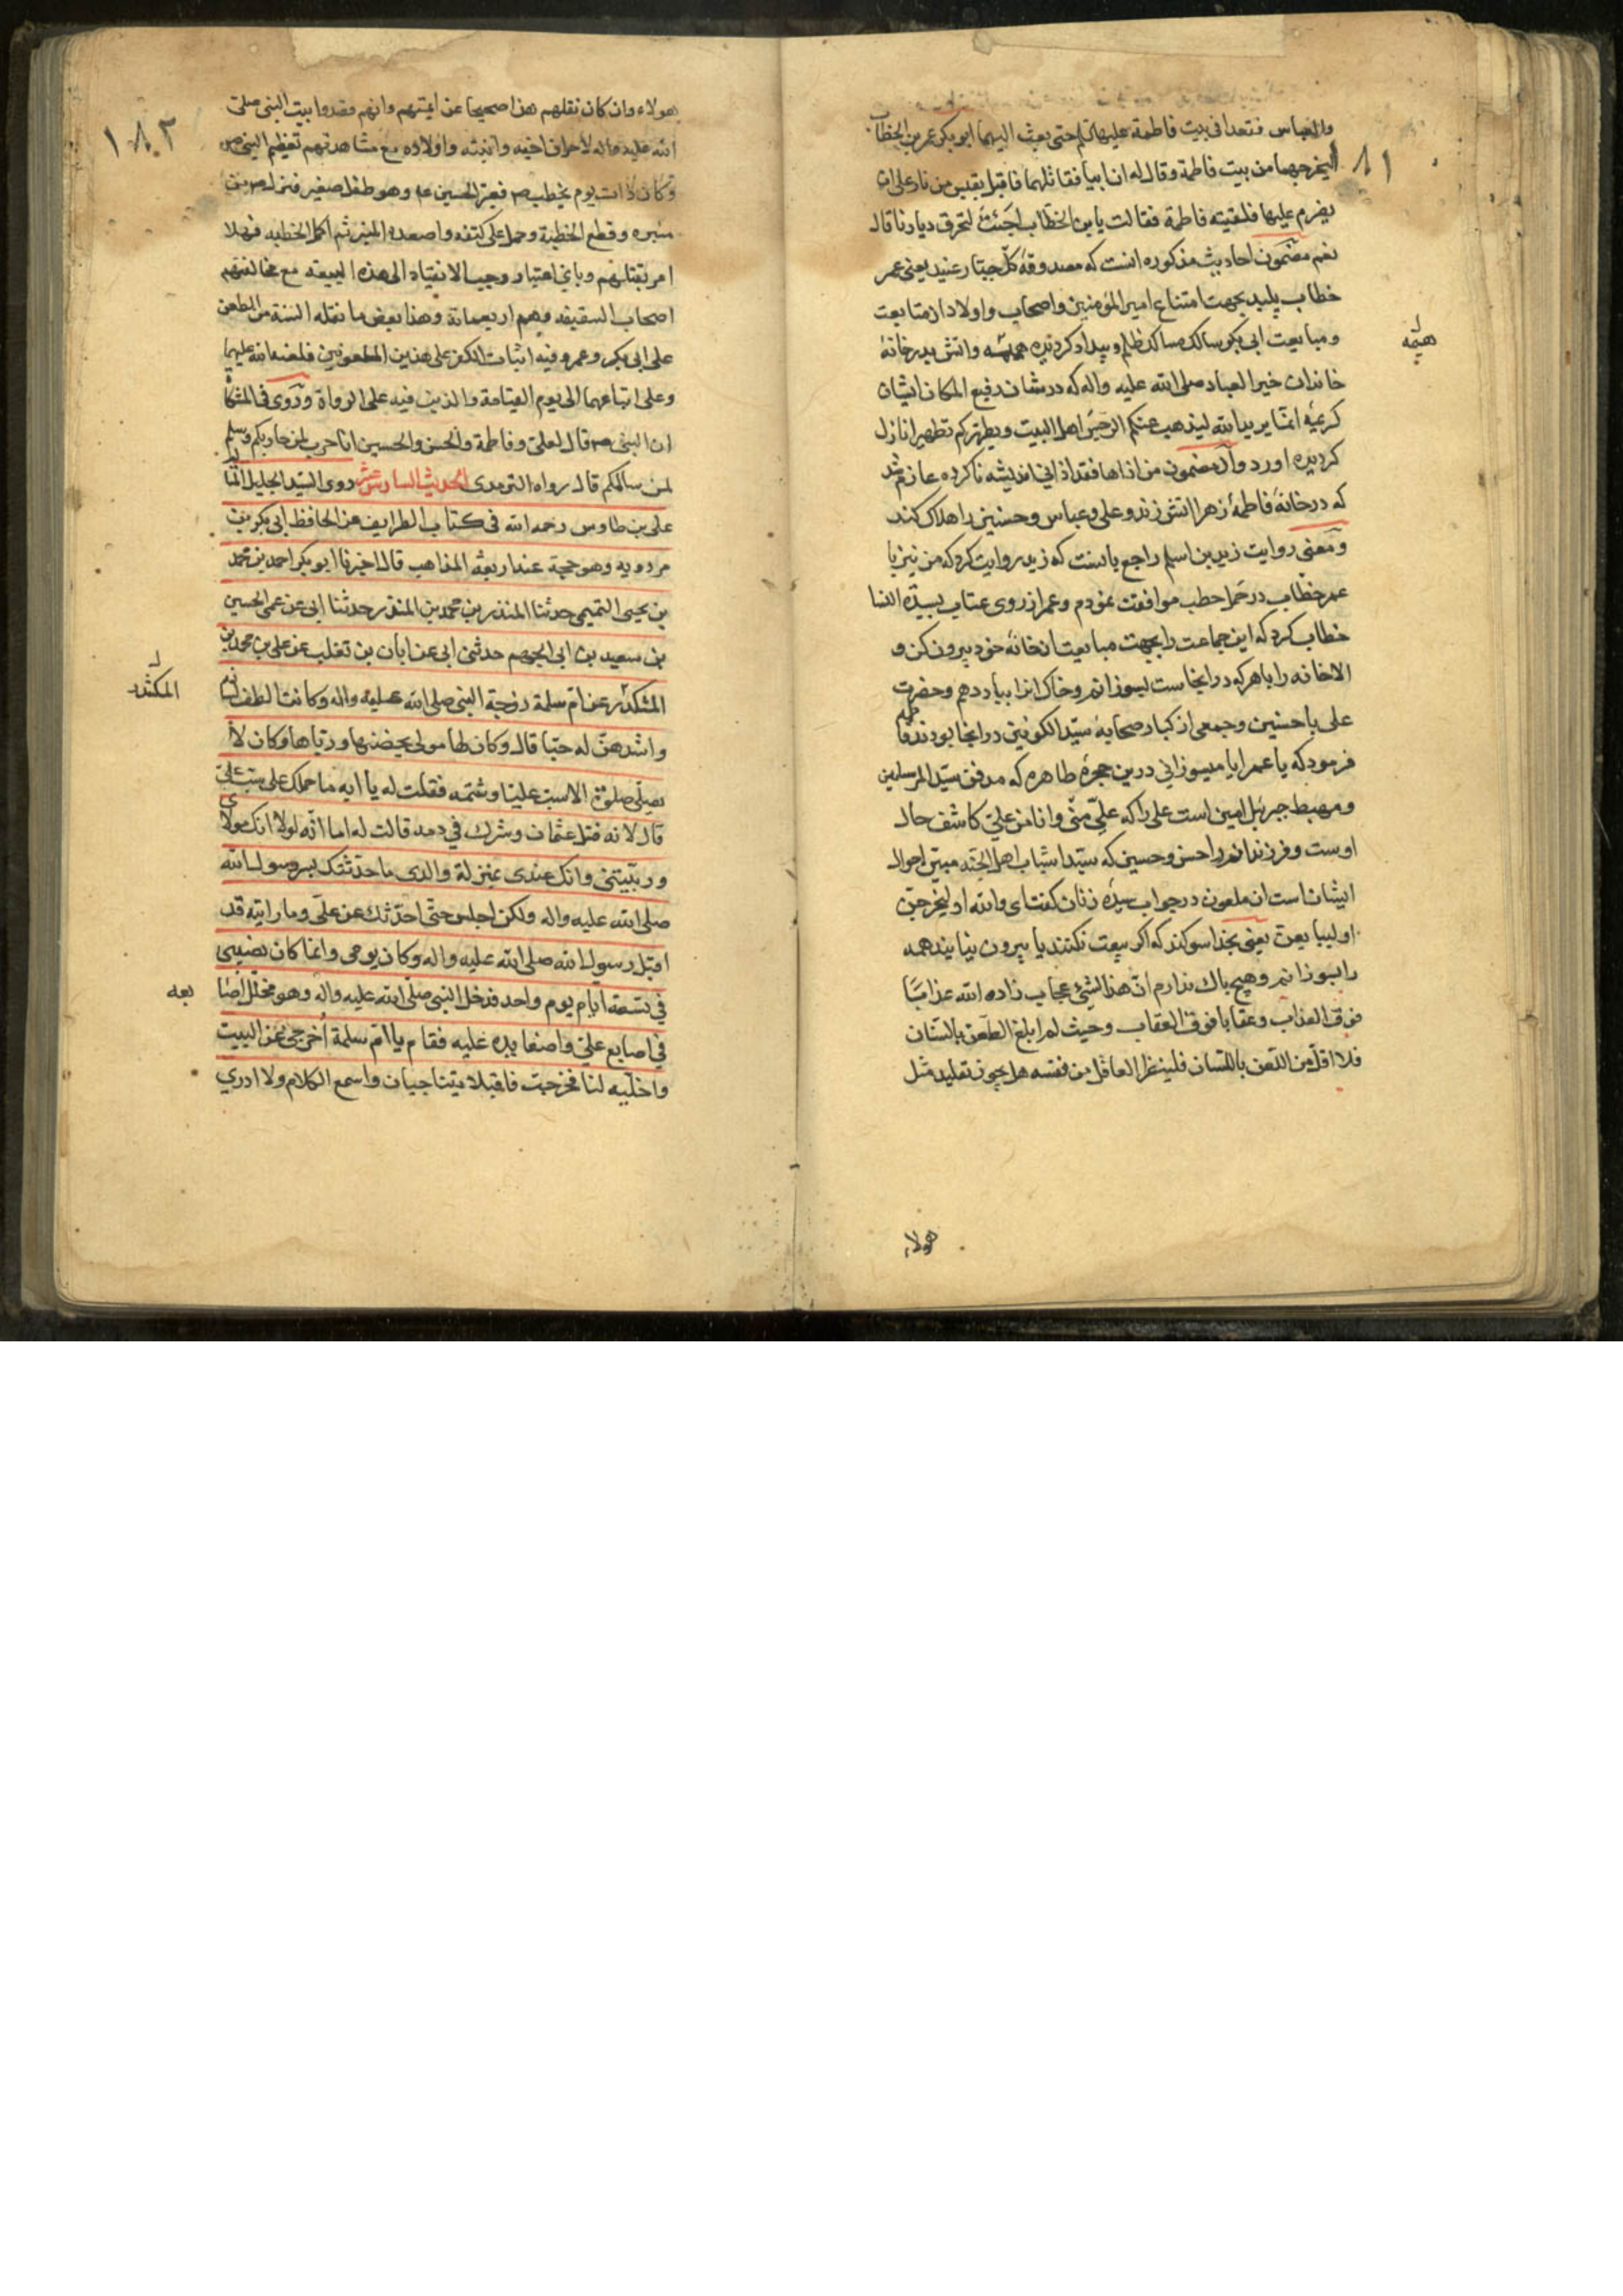 والعباس فقعدا فى بيت فاطمة عليها السلم حتى بعث اليهما ابو بكر عمر بن الخطاب
ليخرجهما من بيت فاطمة وقال له ان ابيا فقاتلهما فاقبل بقبس من نار على ان
يضرم عليها فلقيته فاطمة فقالت يابن الخطاب اجئت لتحرق ديارنا قال
نعم مضمون احاديث مذكوره انست كه مصدوقهٔ كل جبار عنيد يعنى عمر
خطاب پليد بجهت امتناع امير المؤمنين واصحاب واولاد از متابعت
ومبايعت ابى بكر سالك مسالك ظلم وبيداد كرديده واتش بدر خانهٔ
هيمه
خاندان خير العباد صلى الله عليه واله كه در شان رفيع المكان ايشان
كريمهٔ انما يريد الله ليذهب عنكم الرجس اهل البيت ويطهركم تطهيرا نازل
كرديده اورد واز مضمون من اذاها فقد اذانى انديشه ناكرده عازم شد
كه در خانهٔ فاطمهٔ زهرا اتش زند وعلى وعباس وحسنين را هلاك كند
ومعنى روايت زيد بن اسلم راجع بانست كه زيد روايت كرد كه من نيز با
عمر خطاب در حمل حطب موافقت نمودم وعمر از روى عتاب بسيدة النسا
خطاب كرد كه اين جماعت را بجهت مبايعت از خانهٔ خود بيرون كن و
الا خانه را با هر كه در اينجاست بسوزانم وخاك انرا بباد دهم وحضرت
على با حسنين وجمعى از كبار صحابهٔ سيد الكونين در انجا بودند فاطمه
فرمود كه يا عمر ايا ميسوزانى درين حجرهٔ طاهره كه مدفن سيد المرسلين
ومهبط جبرئيل امين است على را كه على منى وانا من على كاشف حال
اوست وفرزندانم را حسن وحسين كه سيدا شباب اهل الجنه مبين احوال
ايشان است ان ملعون در جواب سيدهٔ زنان كفت اى والله او ليخرجن
او ليبايعن يعنى بخدا سوكند كه اكر بيعت نكنند يا بيرون نيايند همه
را بسوزانم وهيچ باك ندارم ان هذا لشئ عجاب زاده الله عذابا
فوق العذاب وعقابا فوق العقاب وحيث لم ابلغ الطعن بالسنان
فلا اقل من اللعن باللسان فلينظر العاقل من نفسه هل يجوز تقليد مثل
هولاء
١٨٢
هولاء وان كان نقلهم هذا صحيحا عن ائمتهم وانهم قصدوا بيت النبى صلى
الله عليه واله لاحراق اخيه وابنته واولاده مع مشاهدتهم تعظيم النبى ص
وكان ذات يوم يخطب ص فعبر الحسين ع وهو طفل صغير فنزل ص من
منبره وقطع الخطبة وحمله على كتفه واصعده المنبر ثم اكمل الخطبه فهلا
امر بقتلهم وباي اعتبار وجب الانقياد الى هذه البيعة مع مخالفتهم
اصحاب السقيفه وهم اربعمائة وهذا بعض ما نقله السنة من الطعن
على ابى بكر وعمر وفيه اثبات الكفر على هذين الملعونين فلعنة الله عليهما
وعلى اتباعهما الى يوم القيامة والذنب فيه على الرواة وروى فى المشكاة
ان النبى ص قال لعلى وفاطمة والحسن والحسين انا حرب لمن حاربكم وسلم
لمن سالمكم قال رواه الترمذى الحديث السادس عشر روى السيد الجليل
على بن طاوس رحمه الله فى كتاب الطرايف عن الحافظ ابى بكر بن
مردويه وهو حجة عند اربعة المذاهب قال اخبرنا ابو بكر احمد بن محمد
بن يحيى التميمى حدثنا المنذر بن محمد بن المنذر حدثنا ابى عن عمى الحسين
بن سعيد بن ابى الجهم حدثنى ابى عن ابان بن تغلب عن على بن محمد بن
المنكدر عن ام سلمة زوجة النبى صلى الله عليه واله وكانت الطف نسائه
واشدهن له حبا قال وكان لها مولى يحضنها ورباها وكان لا
يصلى صلوة الا سب عليا وشتمه فقلت له يا ابه ما حملك على سب على
قال لانه قتل عثمان وشرك في دمه قالت له اما انه لولا انك مولاى
وربيتنى وانك عندى بمنزلة والدى ما حدثتك بسر رسول الله
صلى الله عليه واله ولكن اجلس حتى احدثك عن على وما رايته قد
اقبل رسول الله صلى الله عليه واله وكان يومى وانما كان نصيبى
في تسعة ايام يوم واحد فدخل النبى صلى الله عليه واله وهو مخلل اصا
بعه
في اصابع على واضعا يده عليه فقال يا ام سلمة اخرجى عن البيت
واخليه لنا فخرجت فاقبلا يتناجيان واسمع الكلام ولا ادري